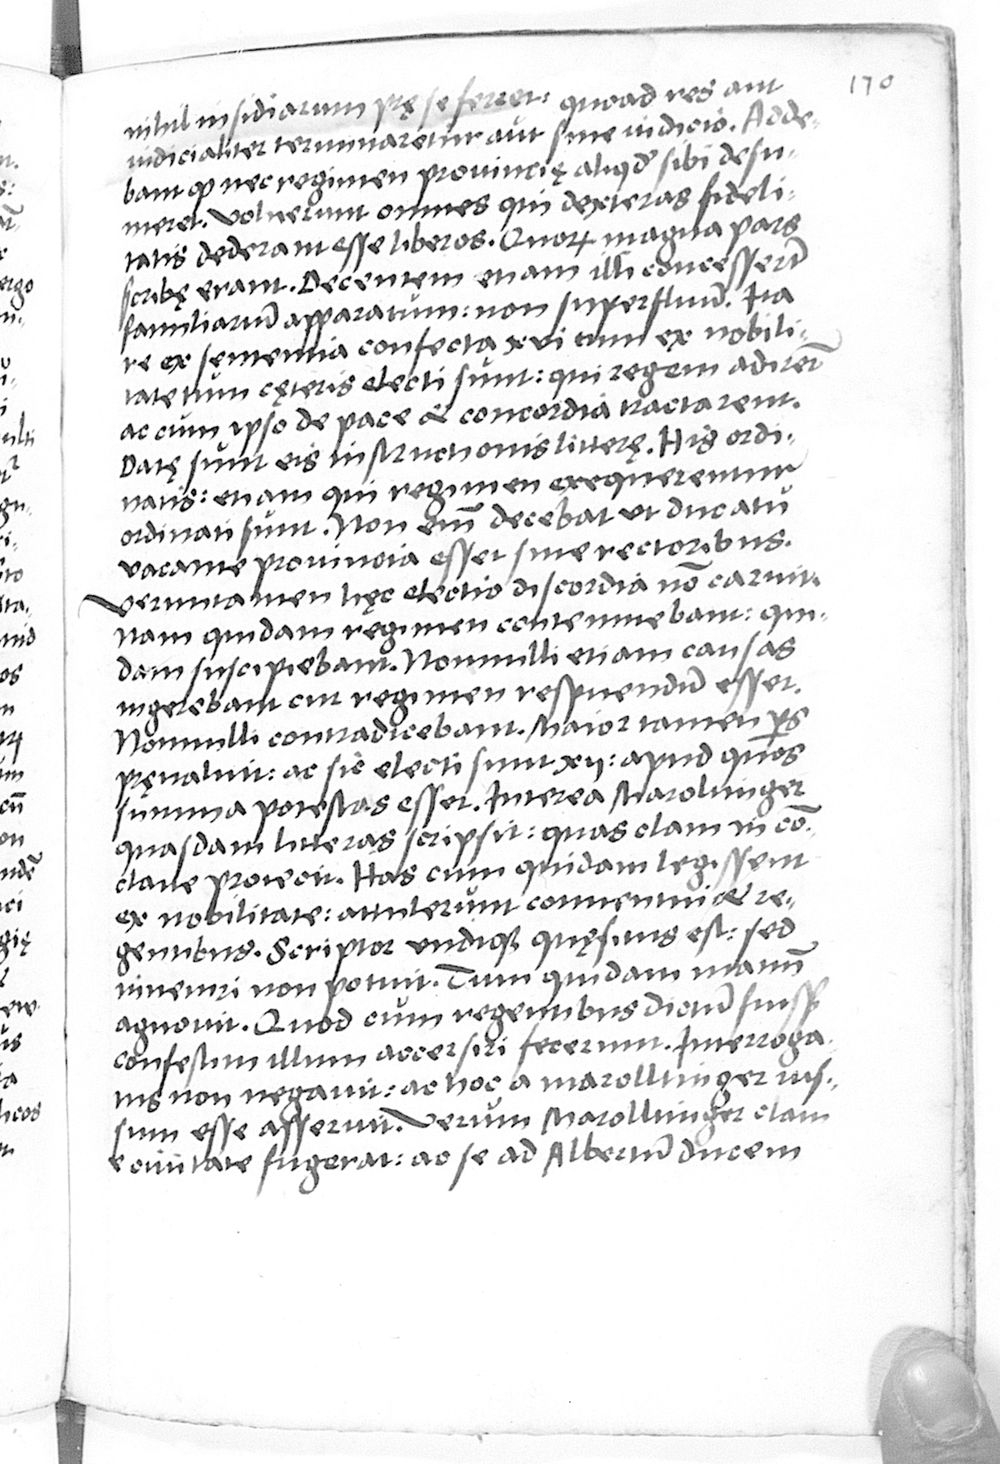 170
nihil insidiarum prę se ferret: quoad res aut
iudicialiter terminaretur aut sine iudicio. Adde-
bant ꝙ nec regimen prouincię aliqd̓ sibi desu-
meret. Voluerunt omnes qui dexteras fideli-
tatis dederant esse liberos. Quoꝝ magna pars
scribę erant. Decentem etiam illi concesserūt
familiariū apparatum: non superfluū. Ita
re ex sententia confecta xvi tum ex nobili-
tate tum cęteris electi sunt: qui regem adirēt
ac cum ipso de pace & concordia tractarent.
Datę sunt eis instructionis litterę. His ordi-
natis: etiam qui regimen exequerentur
ordinati sunt. Non em̄ decebat vt ducatu
vacante prouincia esset sine rectoribus.
Veruntamen hęc electio discordia nō caruit.
nam quidam regimen contemnebant: qui-
dam suscipiebant. Nonnulli etiam causas
ingerebant cur regimen respuendū esset.
Nonnulli contradicebant. Maior tamen ꝑs
pręualuit: ac sic electi sunt xij: apud quos
summa potestas esset. Interea Marolinger
quasdam litteras scripsit: quas clam in cō-
claue proiecit. Has cum quidam legissent
ex nobilitate: attulerunt conuentui & re-
gentibus. Scriptor vndiqꝫ quęsitus est: sed
inueniri non potuit. Tum quidam manū
agnouit. Quod cum regentibus dictū fuissꝫ
confestim illum accersiri fecerunt. Interroga-
tus non negauit: ac hoc a marollinger ius-
sum esse asseruit. Verum Marollinger clam
e ciuitate fugerat: ac se ad Albertū ducem